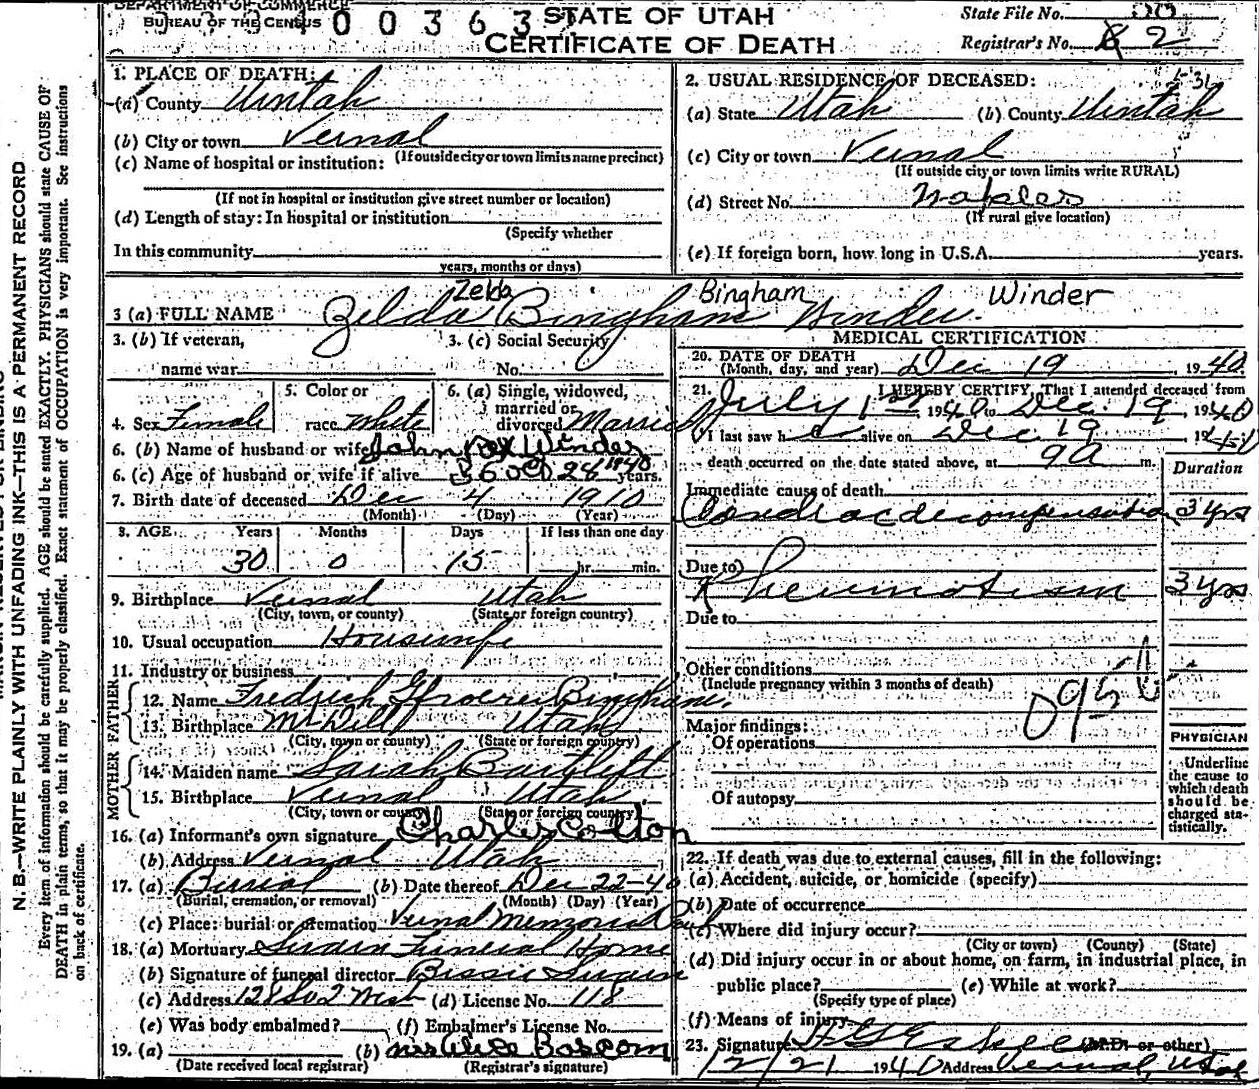 DEPARTMENT OF COMMERCE
BUREAU OF THE CENSUS
0 0 3 6 3
STATE OF UTAH
CERTIFICATE OF DEATH
State File No.
Registrar's No. 2
1. PLACE OF DEATH:
(a) County Uintah
(b) City or town Vernal
(If outside city or town limits name precinct)
(c) Name of hospital or institution:
(If not in hospital or institution give street number or location)
(d) Length of stay: In hospital or institution
(Specify whether
In this community
years, months or days)
2. USUAL RESIDENCE OF DECEASED:
(a) State Utah (b) County Uintah
(c) City or town Vernal
(If outside city or town limits write RURAL)
(d) Street No. Naples
(If rural give location)
(e) If foreign born, how long in U.S.A. years.
Zelda Bingham Winder
3 (a) FULL NAME Zelda Bingham Winder
3. (b) If veteran,
name war
3. (c) Social Security
No.
4. Sex Female
5. Color or
race White
6. (a) Single, widowed,
married or
divorced Married
6. (b) Name of husband or wife John Winder
6. (c) Age of husband or wife if alive years.
7. Birth date of deceased Dec 4 1910
(Month) (Day) (Year)
8. AGE Years Months Days If less than one day
30 0 15 hr. min.
9. Birthplace Vernal Utah
(City, town, or county) (State or foreign country)
10. Usual occupation Housewife
11. Industry or business
FATHER
12. Name Fredrick Bingham
13. Birthplace Utah
(City, town or county) (State or foreign country)
MOTHER
14. Maiden name Sarah Bartlett
15. Birthplace Vernal Utah
(City, town or county) (State or foreign country)
16. (a) Informant's own signature Charles Colton
(b) Address Vernal Utah
17. (a) Burial (b) Date thereof Dec 22-40
(Burial, cremation, or removal) (Month) (Day) (Year)
(c) Place: burial or cremation Vernal Memorial Park
18. (a) Mortuary Swain Funeral Home
(b) Signature of funeral director Bessie Swain
(c) Address 128 So 2 West (d) License No. 118
(e) Was body embalmed? (f) Embalmer's License No.
19. (a) (b) Mrs Alice Bascom
(Date received local registrar) (Registrar's signature)
MEDICAL CERTIFICATION
20. DATE OF DEATH
(Month, day, and year) Dec 19, 1940
21. I HEREBY CERTIFY, That I attended deceased from
July 1st 1940 to Dec. 19, 1940
I last saw her alive on Dec 19 1940
death occurred on the date stated above, at 9 a m.
Duration
Immediate cause of death
Cardiac decompensation 3 yrs
Due to
Rheumatism 3 yrs
Due to
Other conditions
(Include pregnancy within 3 months of death)
Major findings:
Of operations
Of autopsy
PHYSICIAN
Underline
the cause to
which death
should be
charged sta-
tistically.
22. If death was due to external causes, fill in the following:
(a) Accident, suicide, or homicide (specify)
(b) Date of occurrence
(c) Where did injury occur?
(City or town) (County) (State)
(d) Did injury occur in or about home, on farm, in industrial place, in
public place? (e) While at work?
(Specify type of place)
(f) Means of injury
23. Signature (M.D. or other)
12/21 1940 Address Vernal, Utah
N.B.—WRITE PLAINLY WITH UNFADING INK—THIS IS A PERMANENT RECORD
Every item of information should be carefully supplied. AGE should be stated EXACTLY. PHYSICIANS should state CAUSE OF
DEATH in plain terms, so that it may be properly classified. Exact statement of OCCUPATION is very important. See instructions
on back of certificate.